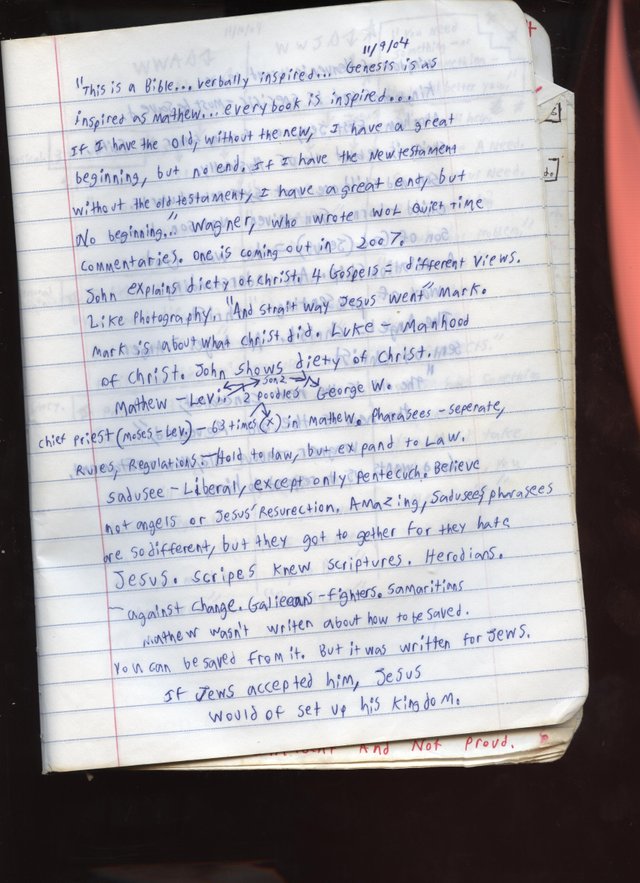 11/9/04
"This is a Bible... verbally inspired... Genesis is as
inspired as Mathew... every book is inspired...
If I have the old, without the new, I have a great
beginning, but no end. If I have the New testament
without the old testament, I have a great end, but
No beginning." Wagner, who wrote WOL Quiet Time
Commentaries. One is coming out in 2007.
John explains diety of christ. 4 Gospels = different views.
Like Photography. "And strait way Jesus went" Mark.
Mark is about what christ did. Luke - Manhood
of christ. John shows diety of Christ.
sonz
Mathew - Levi. 2 poodles George W.
chief priest (Moses - Lev.) - 63 times (x) in Mathew. Pharasees - seperate,
Rules, Regulations - Hold to law, but expand to Law.
Sadusee - Liberal, except only Pentecuch. Believe
not angels or Jesus' Resurection. Amazing, Sadusees pharasees
are so different, but they got to gether for they hate
Jesus. Scripes knew scriptures. Herodians.
- against change. - fighters. Samaritims
Mathew wasn't writen about how to be saved.
You can be saved from it. But it was written for Jews.
If Jews accepted him, Jesus
would of set up his Kingdom.
And Not Proud.